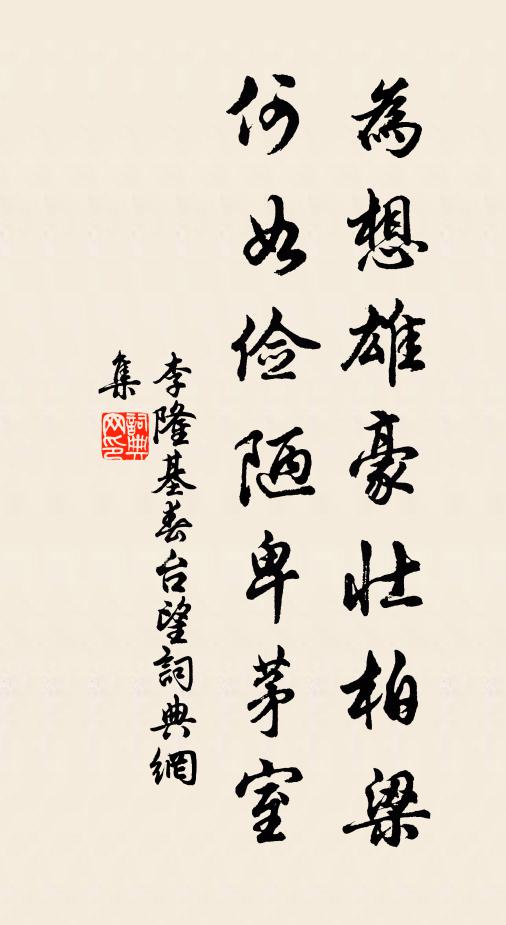 為想雄豪壯柏梁
何如俭陋卑茅室
李隆基春台望詞典網
集
詞典
网印